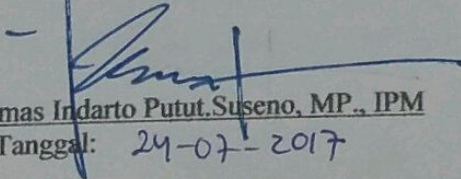 mas Indarto Putut.Suseno, MP., IPM
Tanggal: 24-07-2017